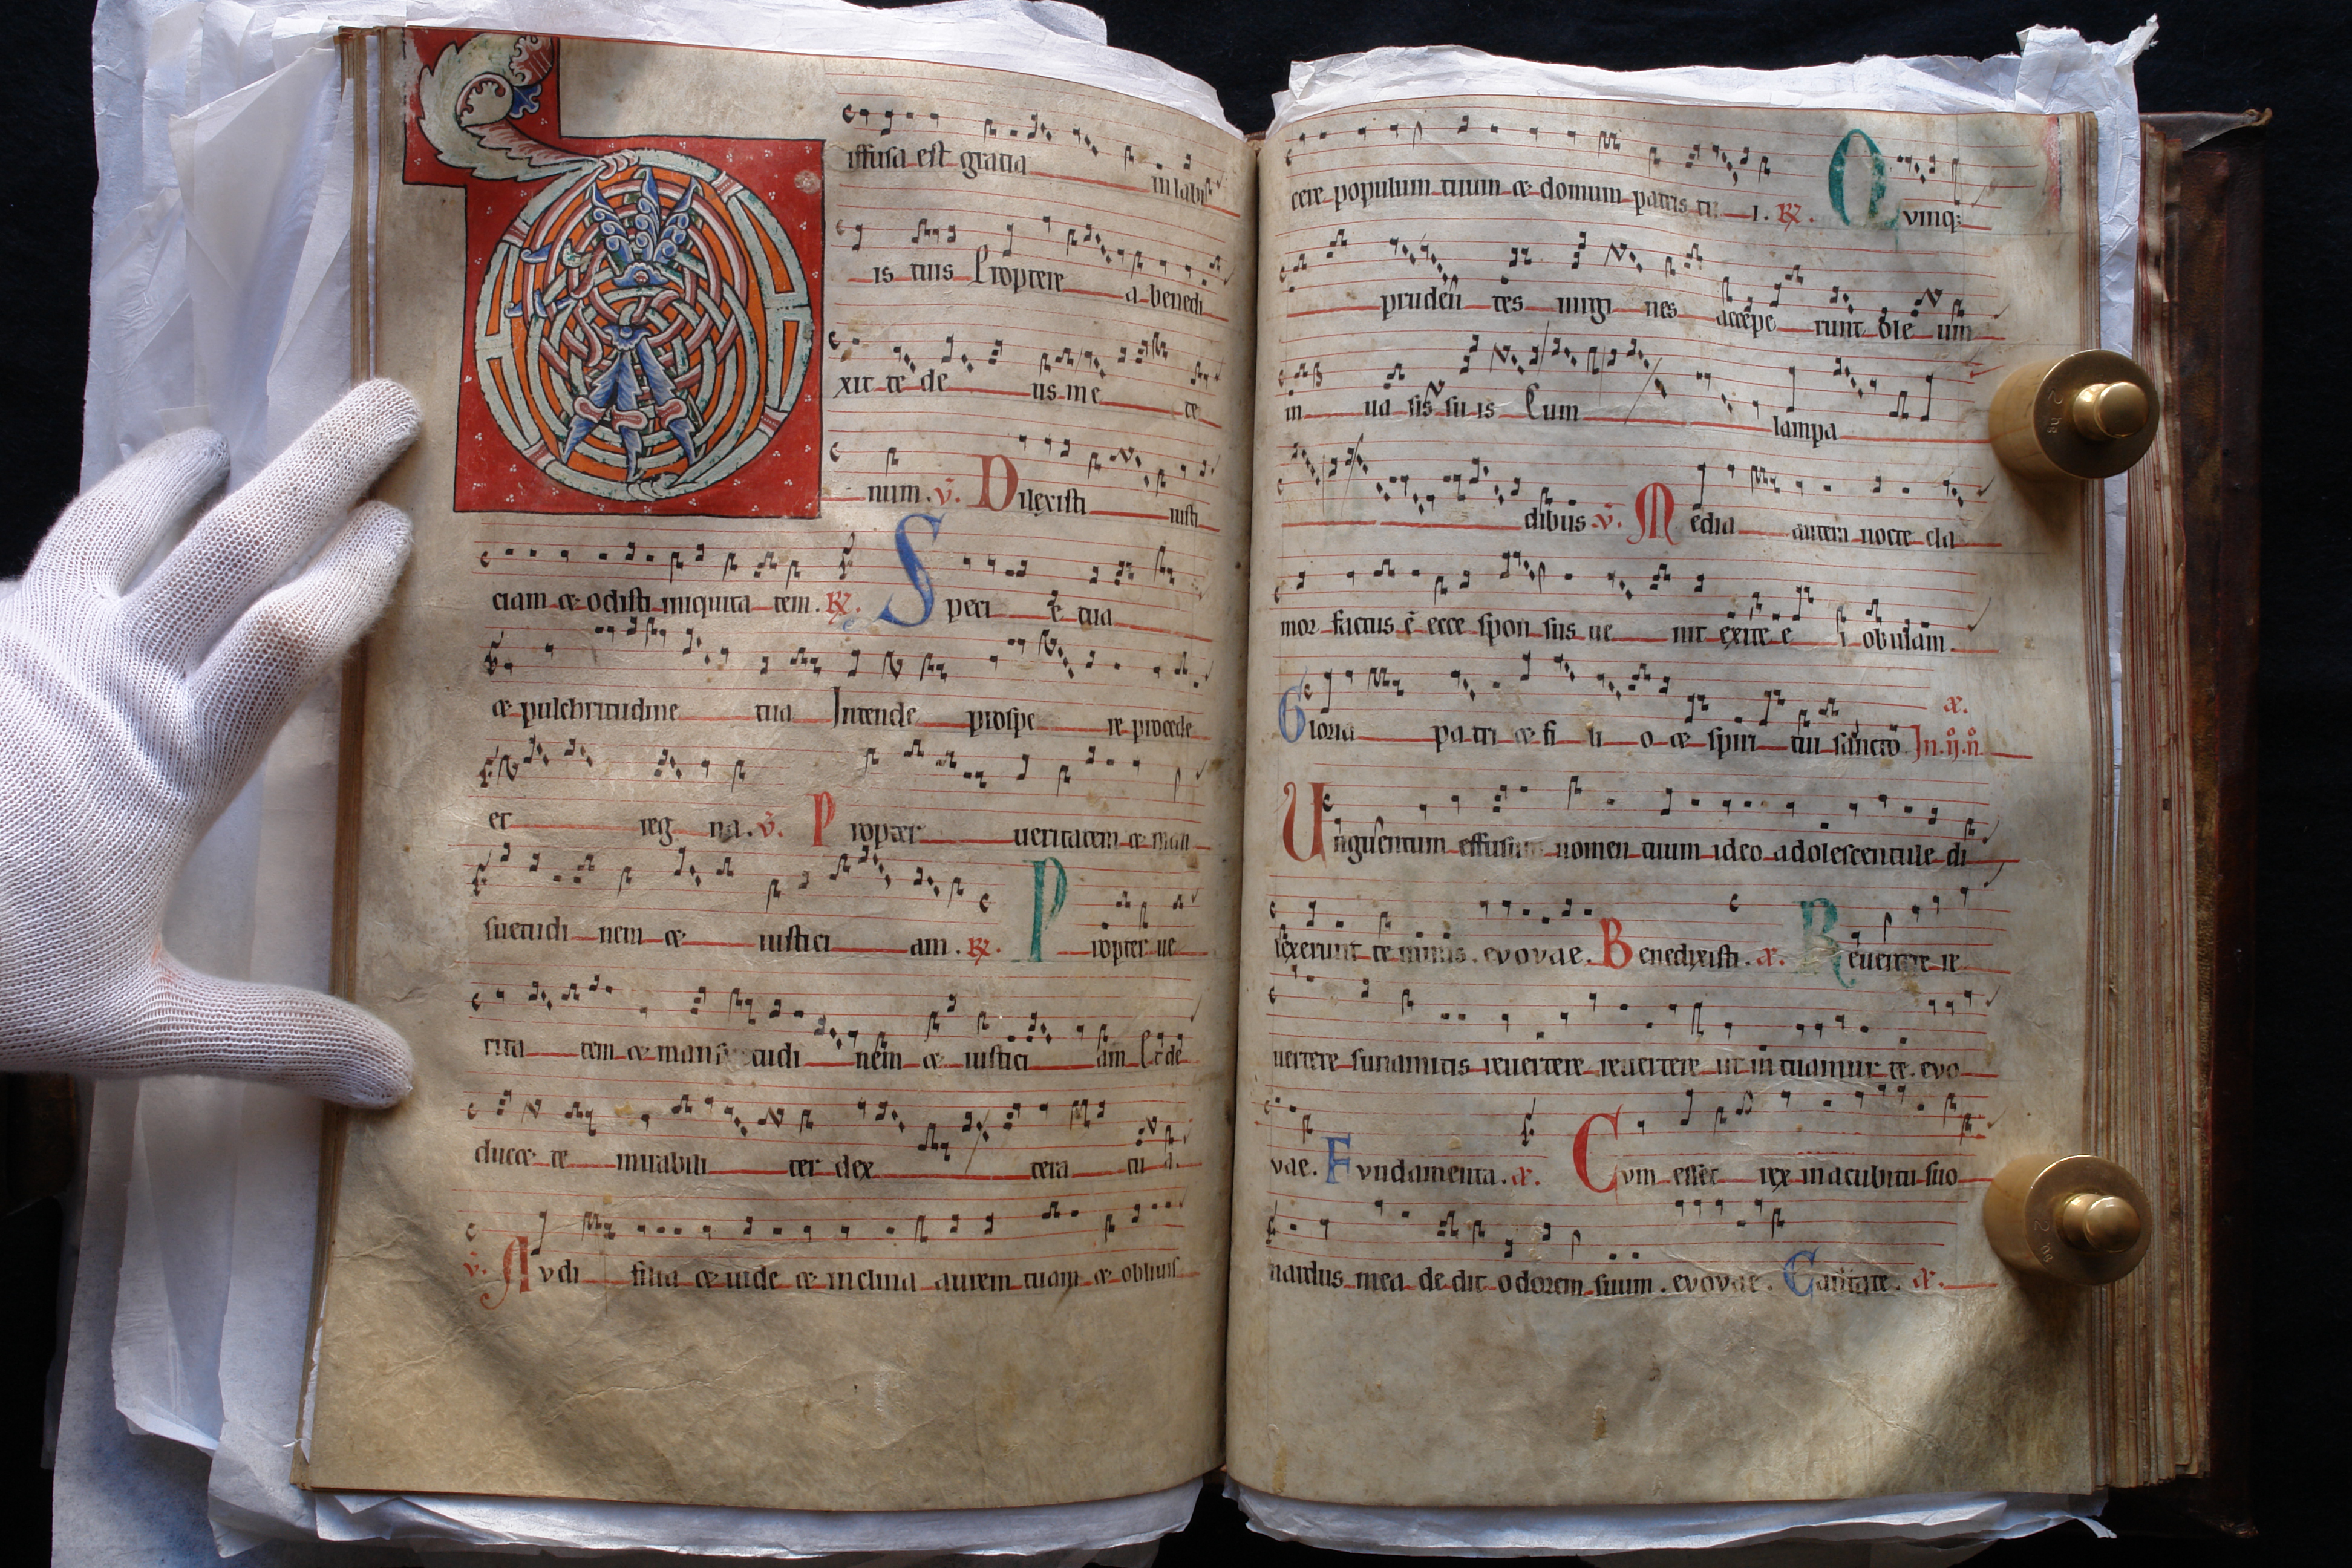 iffusa est gratia in labi
is tuis Proptere a benedi
xit te de us in e te
num. v. Dilexisti iusti
ciam & odisti iniquita tem. R. Speci e tua
& pulchritudine tua Intende prospe re procede
et reg na. v. Propter veritatem & man
suetudi nem & iustici am. R. Propter ue
rita tem & mansuetudi nem & iustici am Et de
ducet te mirabili ter dex tera tu a.
v. Audi filia & uide & inclina aurem tuam & obliuis
cere populum tuum & domum patris tu i. R. Quinq;
pruden tes uirgi nes accepe runt ole um
in ua sis su is Cum lampa
dibus v. Media autem nocte cla
mor factus ē ecce spon sus ue nit exite e i obuiam.
Gloria pa tri & fi li o & spiri tui sancto In. ij. n. æ.
Unguentum effusum nomen tuum ideo adolescentule di
lexerunt te nimis. evovae. Benedixisti. æ. Reuertere re
uertere sunamitis reuertere reuertere ut intuamur te. evo
vae. Fundamenta. æ. Cum esset rex in accubitu suo
nardus mea de dit odorem suum. evovae. Cantate. æ.
2 kg
2 kg